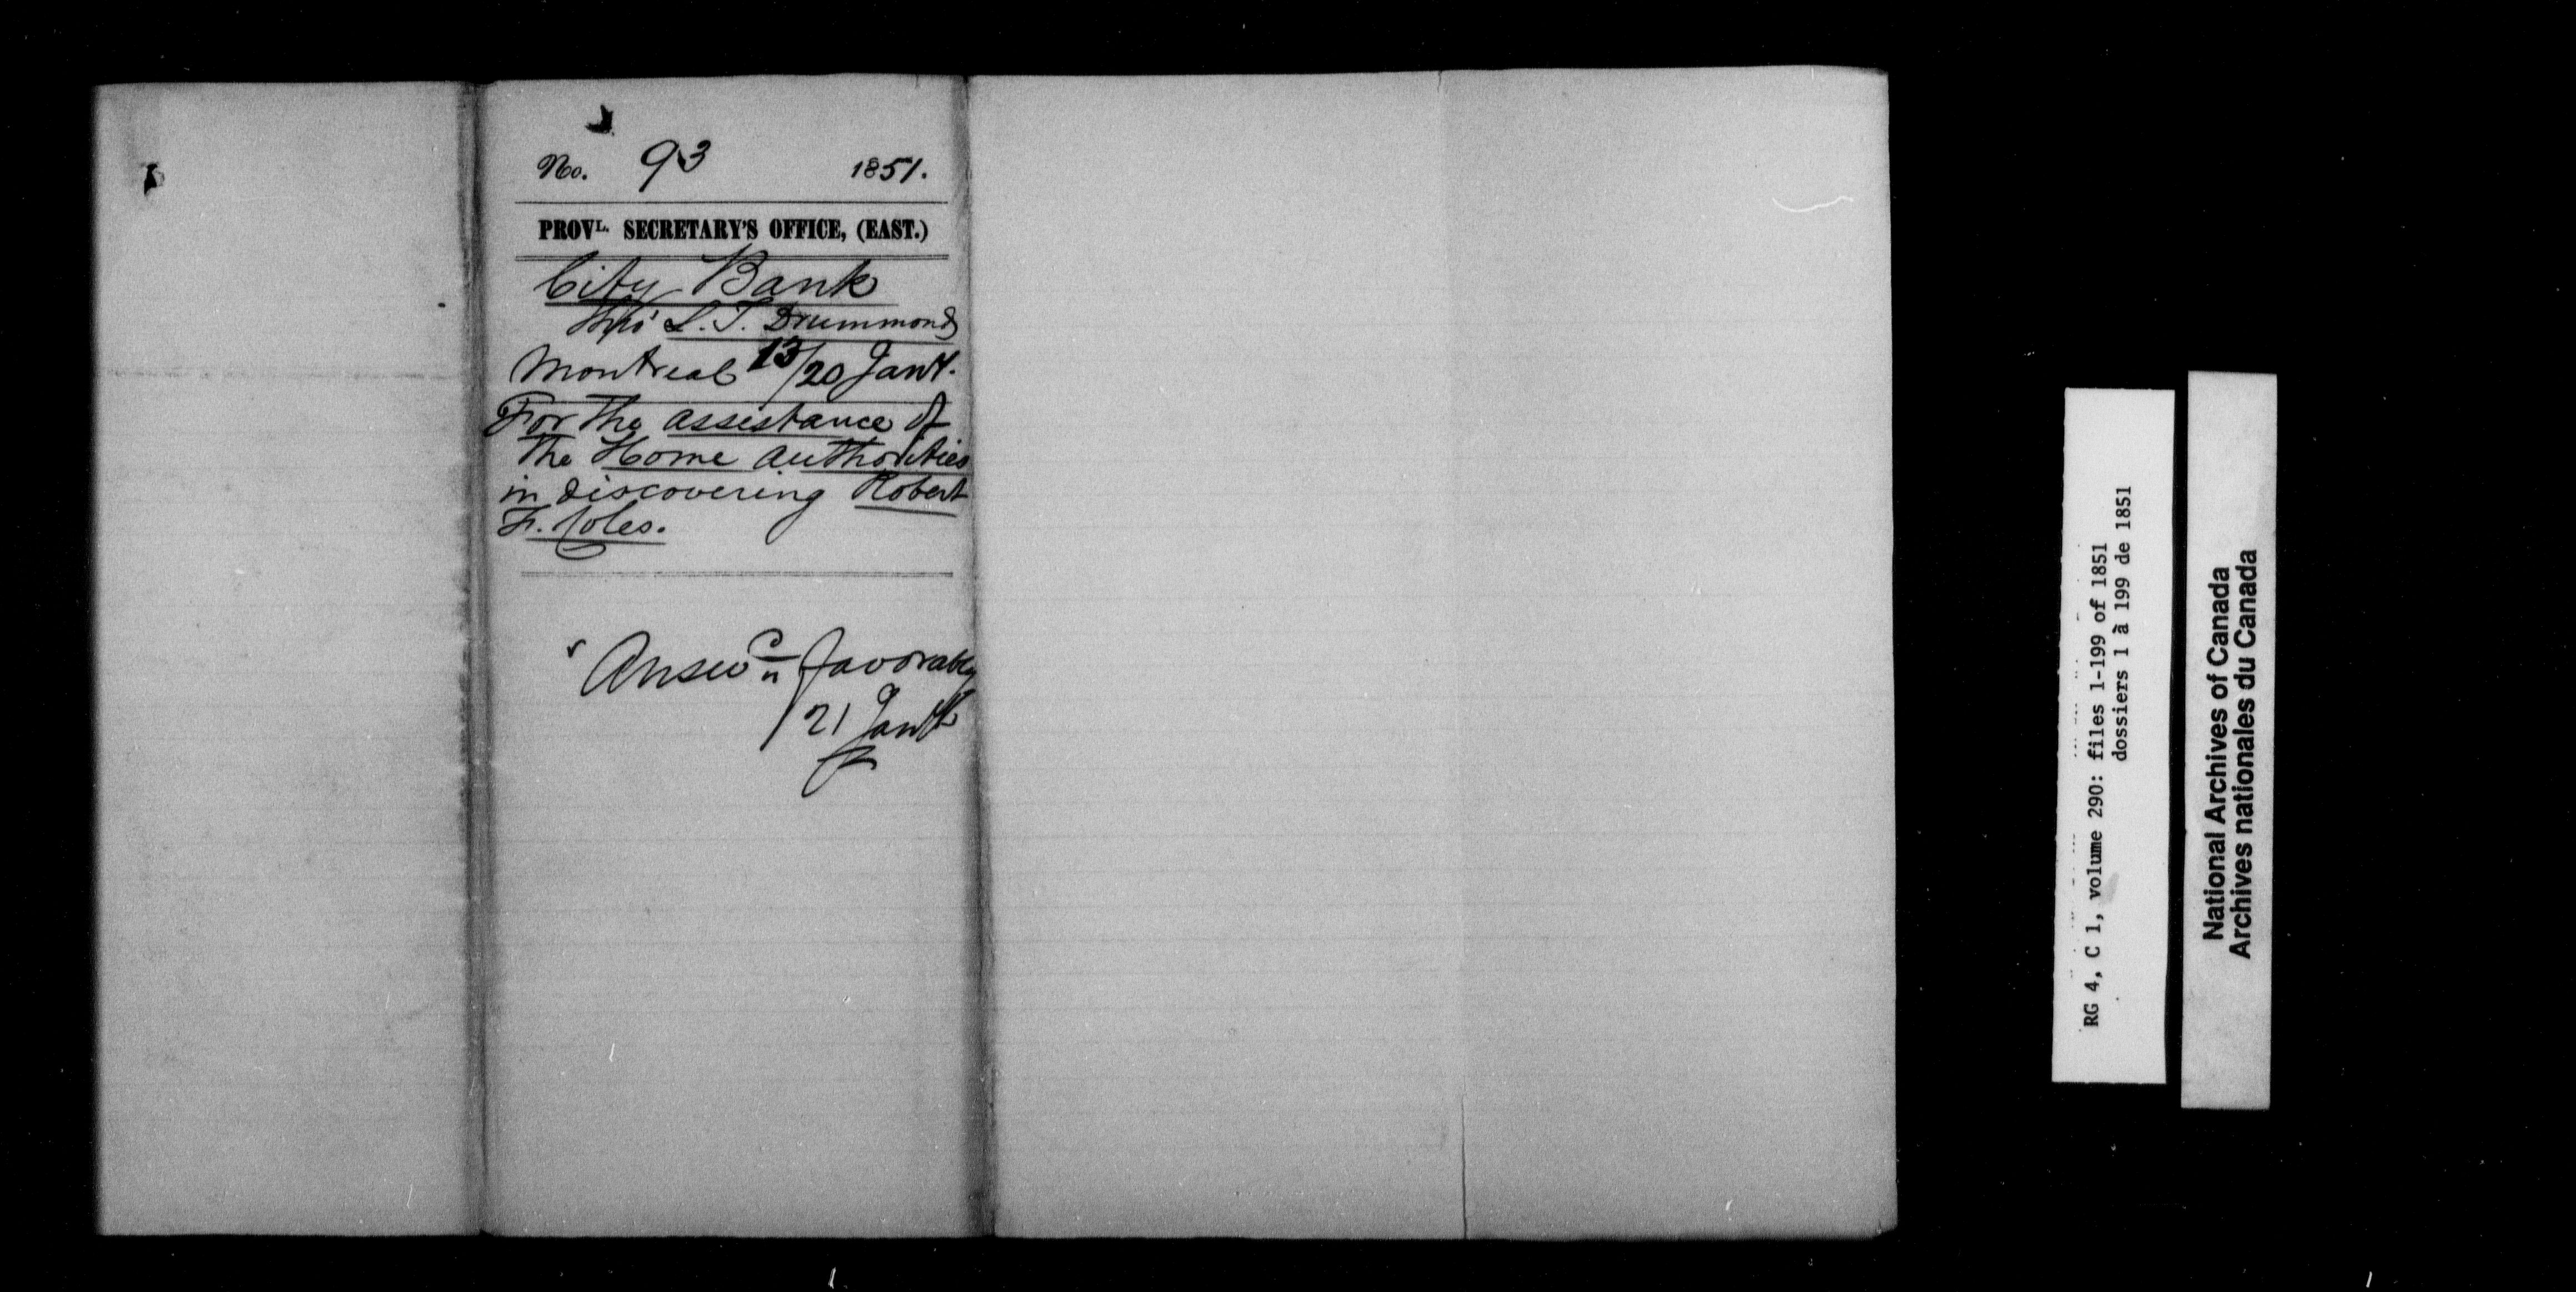 No. 93 1851.
PROVL. SECRETARY'S OFFICE, (EAST.)
City Bank
thro' L. T. Drummond
Montreal 13/20 Jany.
For the assistance of
the Home authorities
in discovering Robert
F. Coles.
Answd favorably
21 Jany
RG 4, C 1, volume 290: files 1-199 of 1851
dossiers 1 à 199 de 1851
National Archives of Canada
Archives nationales du Canada